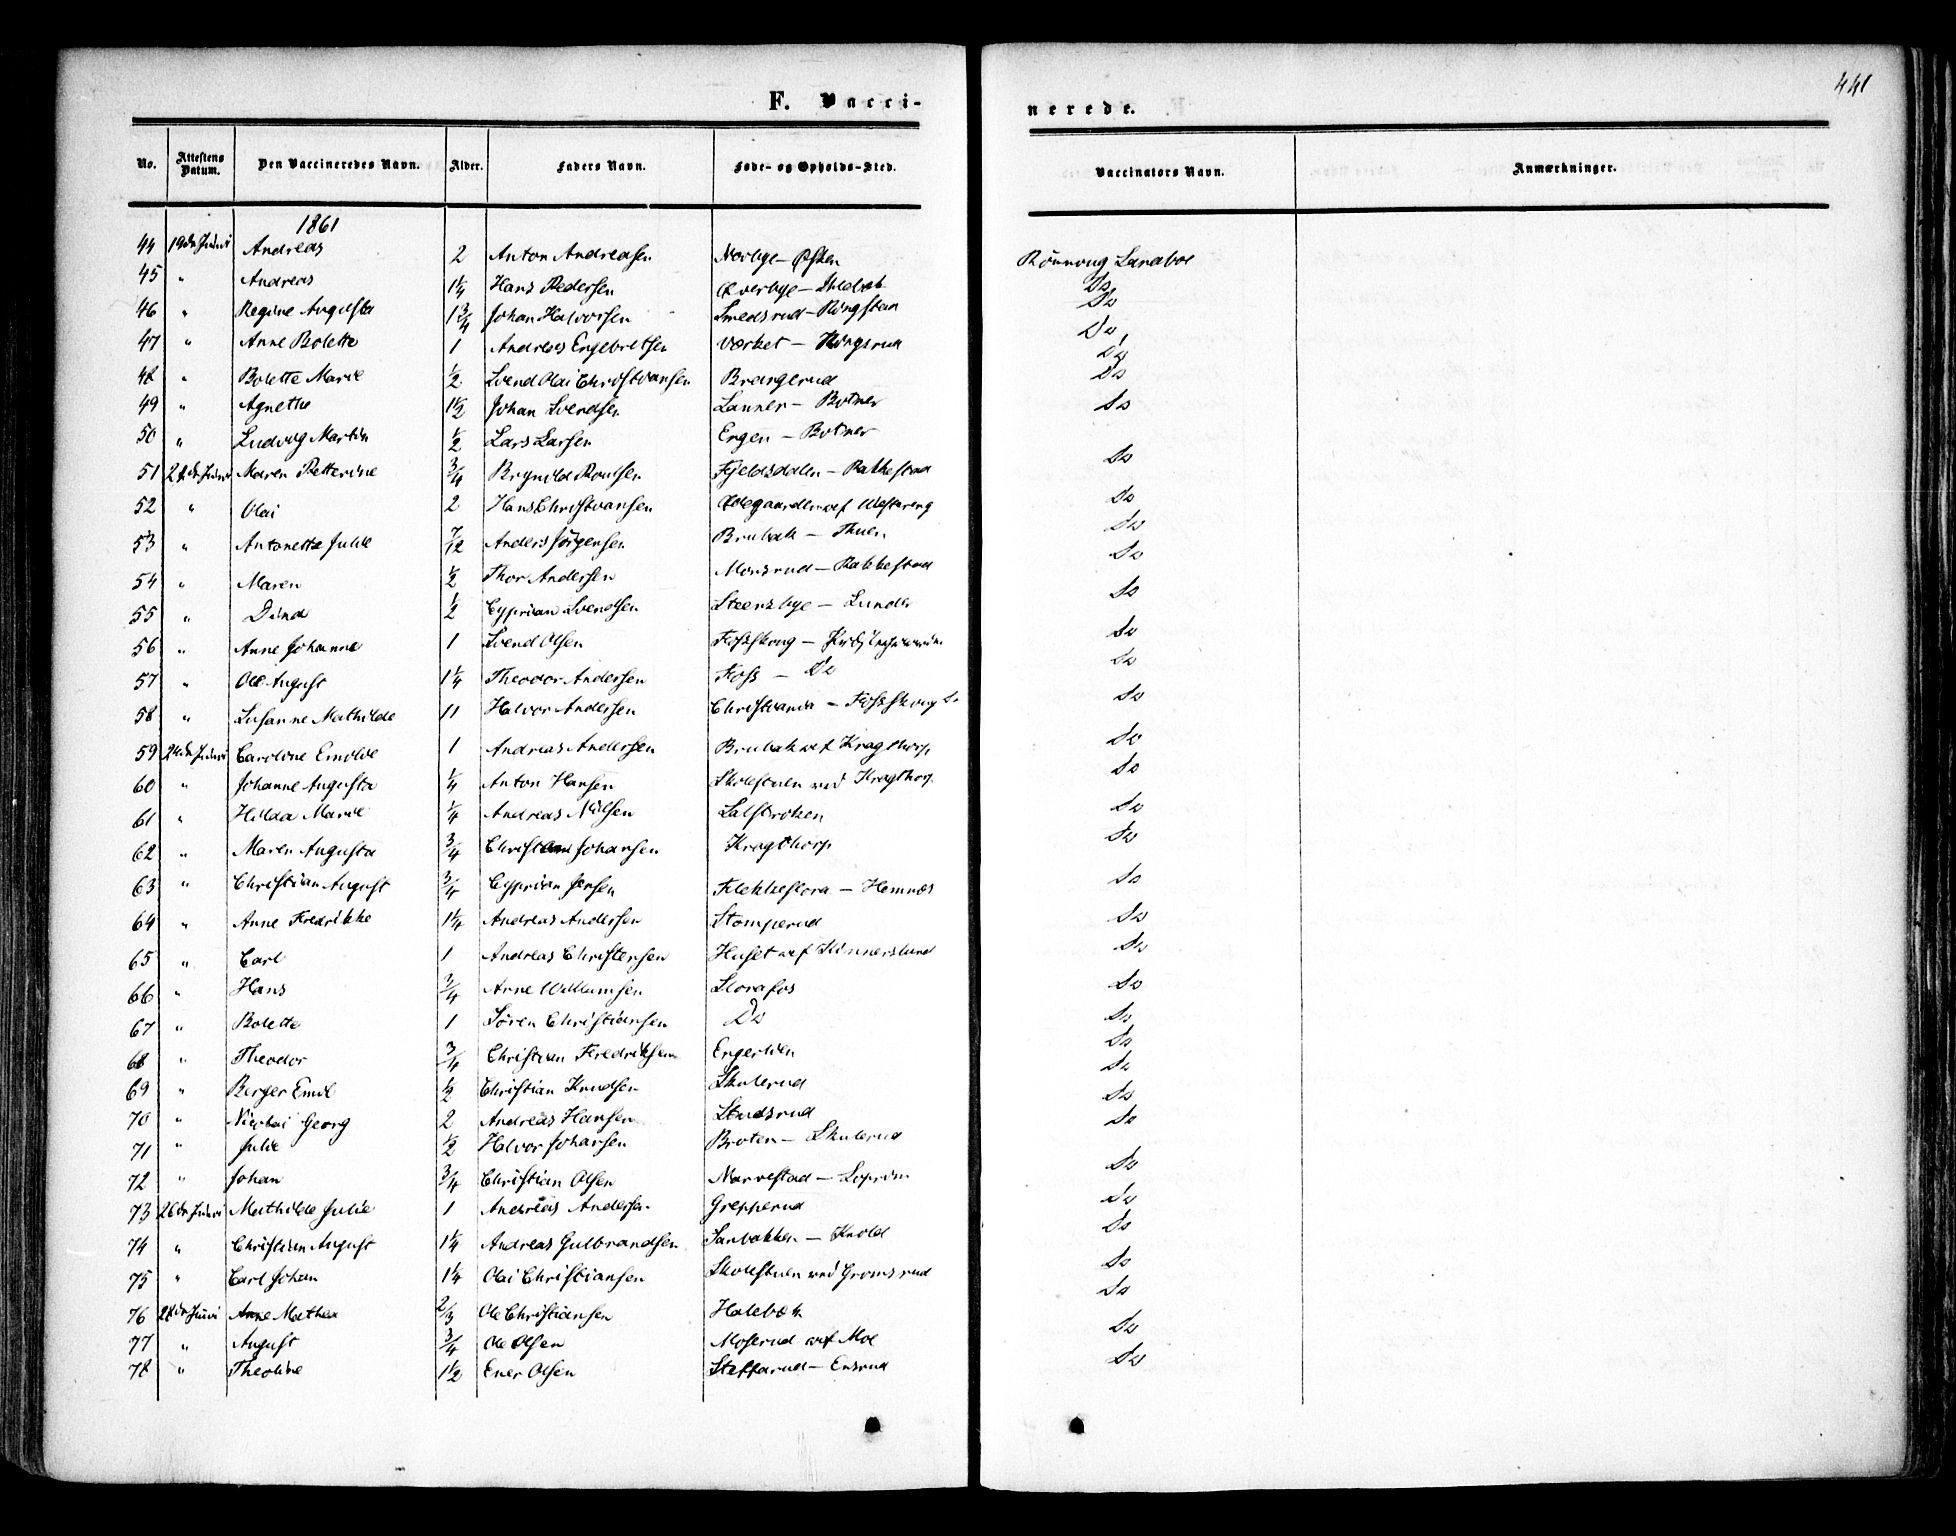 F. Vacci-
nerede.
441
No. Attestens Datum. Den Vaccineredes Navn. Alder. Faders Navn. Føde- og Opholds-Sted. Vaccinators Navn. Anmærkninger.
1861
44 19de Juni Andreas 2 Anton Andreasen Norbye - Østen Landboe
45 " Andreas 1¼ Hans Pedersen Do
46 " Regine Augusta 1¾ Johan Halvorsen Smedsrud - Ringstad Do
47 " Anne Bolette 1 Andreas Engebretsen Værket - Kingsrud Do
48 " Bolette Marie ½ Svend Olai Christiansen Brangerud Do
49 " Agnethe 1½ Johan Svendsen Lanner - Botner Do
50 " Ludvig Martin ½ Lars Larsen Engen - Botner Do
51 28de Juni Maren Petterine ¾ Brynild Poulsen Fjeldsdalen - Rakkestad Do
52 " Olai 2 Hans Christiansen Ødegaarden vest Do
53 " Antonette Julie 7/12 Anders Jörgensen Brubak - Thuen Do
54 " Maren ½ Thor Andersen Monsrud - Rakkestad Do
55 " Dina ½ Cyprian Svendsen Steensbye - Lunder Do
56 " Anne Johanne 1 Svend Olsen Fossskoug - Do
57 " Ole August 1¼ Theodor Andersen Foss - Do Do
58 " Susanne Mathilde 11 Halvor Andersen Christiania - Fossskoug Do Do
59 24de Juni Caroline Emilie 1 Andreas Andersen Brubak vest Kragthorp Do
60 " Johanne Augusta ¼ Anton Hansen Skolestuen ved Kragthorp Do
61 " Hilda Marie ¼ Andreas Nilsen Do
62 " Maren Augusta ¾ Christian Johansen Kragthorp Do
63 " Christian August ¾ Cyprian Jensen Flekkeflora - Hemnæs Do
64 " Anne Fredrikke 1¼ Andreas Andersen Stomperud Do
65 " Carl 1 Andreas Christensen Huset vest Do
66 " Hans ¾ Arne Willumsen Storafos Do
67 " Bolette 1 Sören Christiansen Do Do
68 " Theodor ¾ Christian Fredriksen Engerlien Do
69 " Berger Emil ½ Christian Knudsen Skulerud Do
70 " Nicolai Georg 2 Andreas Hansen Studsrud Do
71 " Julie ½ Halvor Johansen Broten - Skulerud Do
72 " Johan ¾ Christian Olsen Narvestad - Do
73 26de Juni Mathilde Julie 1 Andreas Andersen Grepperud Do
74 " Christian August 1¼ Andreas Gulbrandsen Sanbakken - Knold Do
75 " Carl Johan 1¼ Olai Christiansen Skolestuen ved Gromsrud Do
76 28de Juni Anne Mathea ⅔ Ole Christiansen Holebæk Do
77 " August ¾ Ole Olsen Moserud vest Moe Do
78 " Theoline 1½ Ener Olsen Steffarud - Ensrud Do